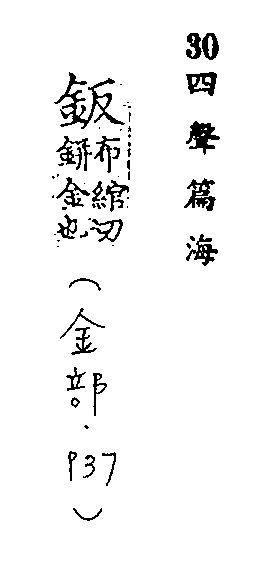 30四聲篇海
鈑
布綰切
鉼金也
(金部.P37)